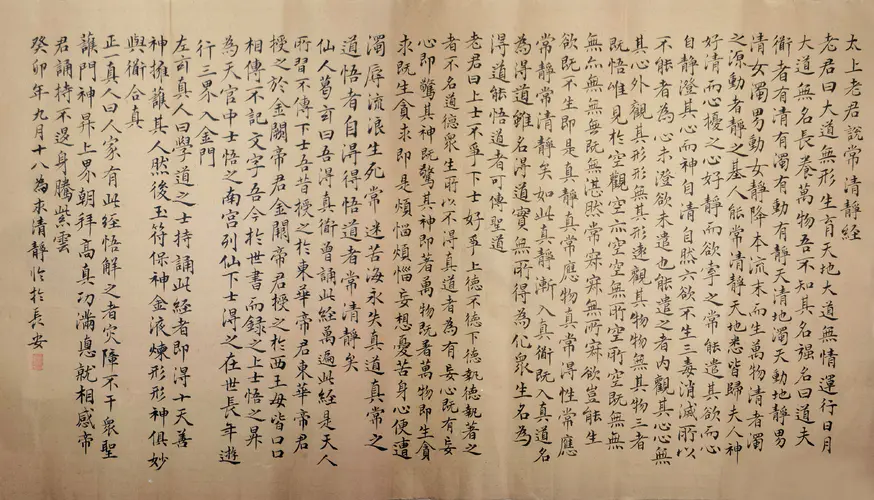 太上老君說常清靜經
老君曰大道無形生育天地大道無情運行日月
大道無名長養萬物吾不知其名强名曰道夫
衟者有清有濁有動有靜天清地濁天動地靜男
清女濁男動女靜降本流末而生萬物清者濁
之源動者靜之基人能常清靜天地悉皆歸夫人神
好清而心擾之心好靜而欲牽之常能遣其欲而心
自靜澄其心而神自清自然六欲不生三毒消滅所以
不能者為心未澄欲未遣也能遣之者內觀其心心無
其心外觀其形形無其形遠觀其物物無其物三者
既悟唯見於空觀空亦空空無所空所空既無無
無亦無無無既無湛然常寂寂無所寂欲豈能生
欲既不生即是真靜真常應物真常得性常應
常靜常清靜矣如此真靜漸入真衟既入真道名
為得道雖名得道實無所得為化衆生名為
得道能悟道者可傳聖道
老君曰上士不爭下士好爭上德不德下德執德執著之
者不名道德衆生所以不得真道者為有妄心既有妄
心即驚其神既驚其神即著萬物既著萬物即生貪
求既生貪求即是煩惱煩惱妄想憂苦身心便遭
濁辱流浪生死常迷苦海永失真道真常之
道悟者自得得悟道者常清靜矣
仙人葛玄曰吾得真衟曾誦此經萬遍此經是天人
所習不傳下士吾昔授之於東華帝君東華帝君
授之於金闕帝君金闕帝君授之於西王母皆口口
相傳不記文字吾今於世書而錄之上士悟之昇
為天官中士悟之南宫列仙下士得之在世長年遊
行三界入金門
左玄真人曰學道之士持誦此經者即得十天善
神擁護其人然後玉符保神金液煉形形神俱妙
與衟合真
正一真人曰人家有此經悟解之者灾障不干衆聖
護門神昇上界朝拜高真功滿悳就相感帝
君誦持不退身騰紫雲
癸卯年九月十八為求清靜臨於長安